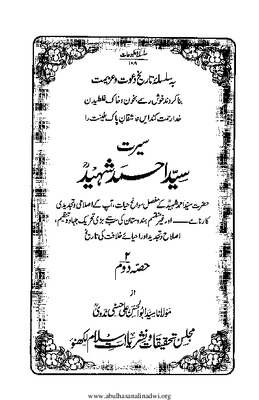 سلسلۂ مطبوعات
۱۰۹
بہ سلسلۂ تاریخ دعوت و عزیمت
بنا کردند خوش رسمے بخون و خاک غلطیدن
خدا رحمت کند ایں عاشقانِ پاک طینت را
سیرت
سید احمد شہیدؒ
حضرت سید احمد شہیدؒ کے مفصل سوانح حیات، آپ کے اصلاحی و تجدیدی
کارنامے — اور غیر منقسم ہندوستان کی سب سے بڑی تحریک جہاد و تنظیم،
اصلاح و تجدید اور احیائے خلافت کی تاریخ
۲
حصہ دوم
از
مولانا سید ابو الحسن علی حسنی ندویؒ
مجلس تحقیقات و نشریات اسلام لکھنؤ
www.abulhasanalinadwi.org